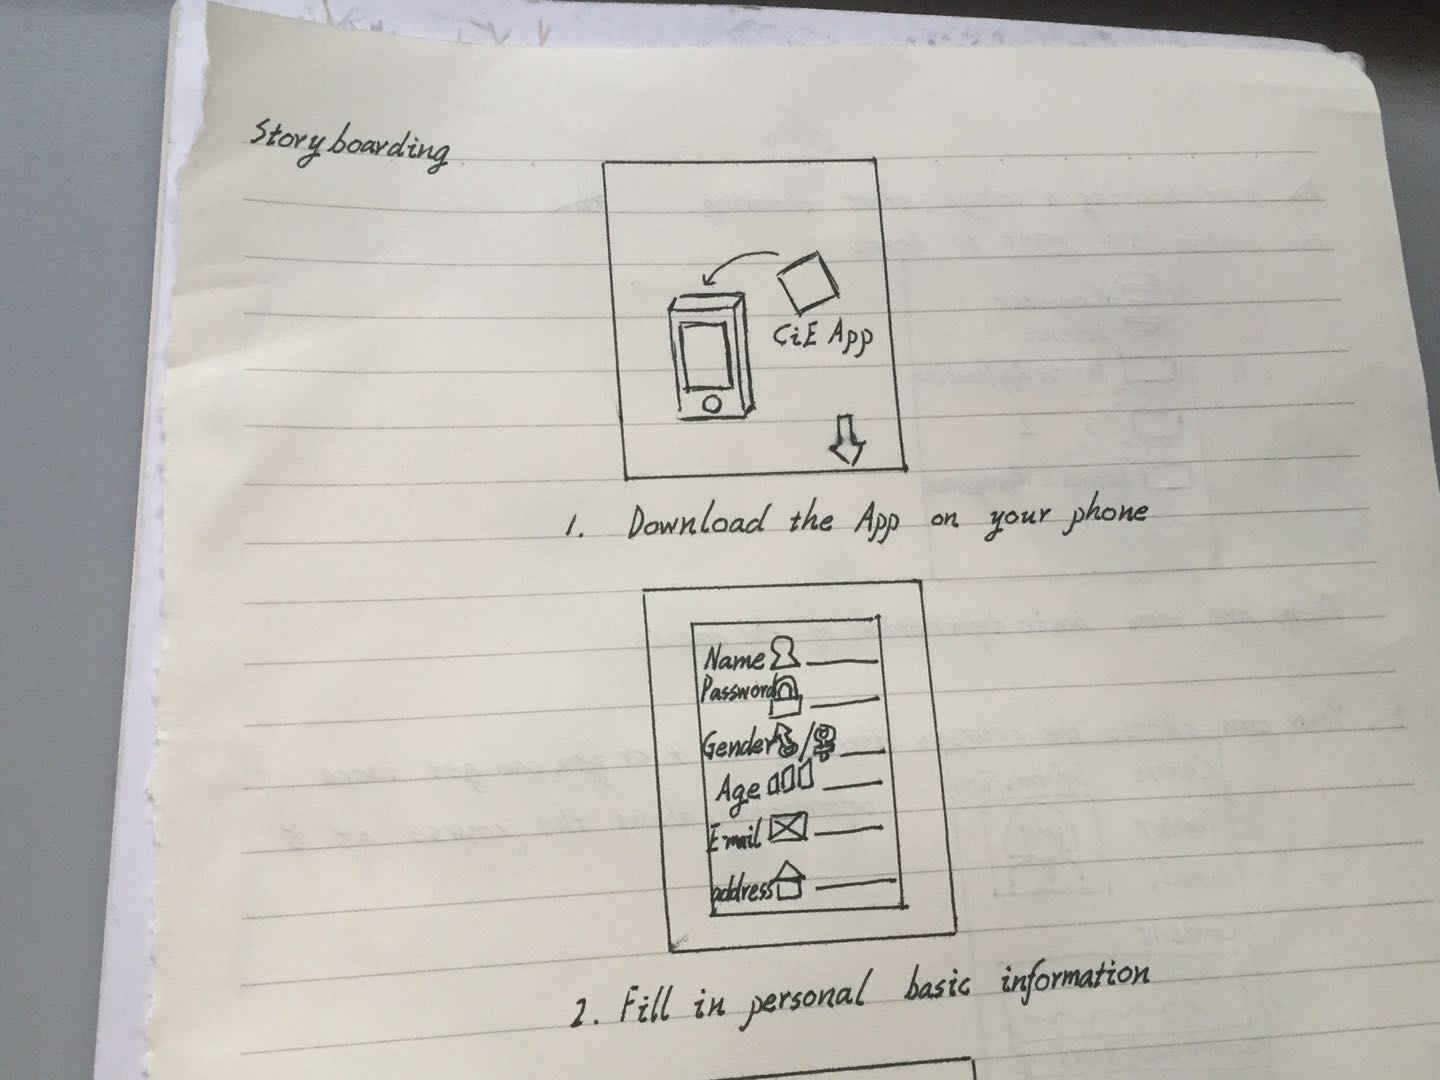 Storyboarding
CiE App
1. Download the App on your phone
Name
Password
Gender /
Age
Email
address
2. Fill in personal basic information